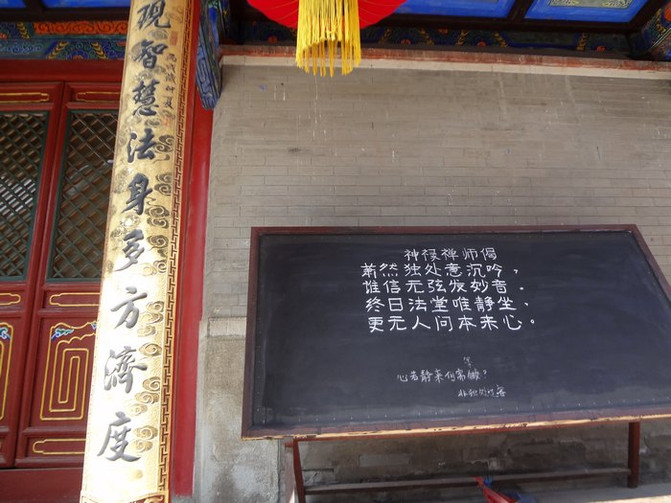 現智慧法身多方濟度
神禄禅师偈
萧然独处意沉吟，
谁信无弦发妙音。
终日法堂唯静坐、
更无人问本来心。
心若静来何需